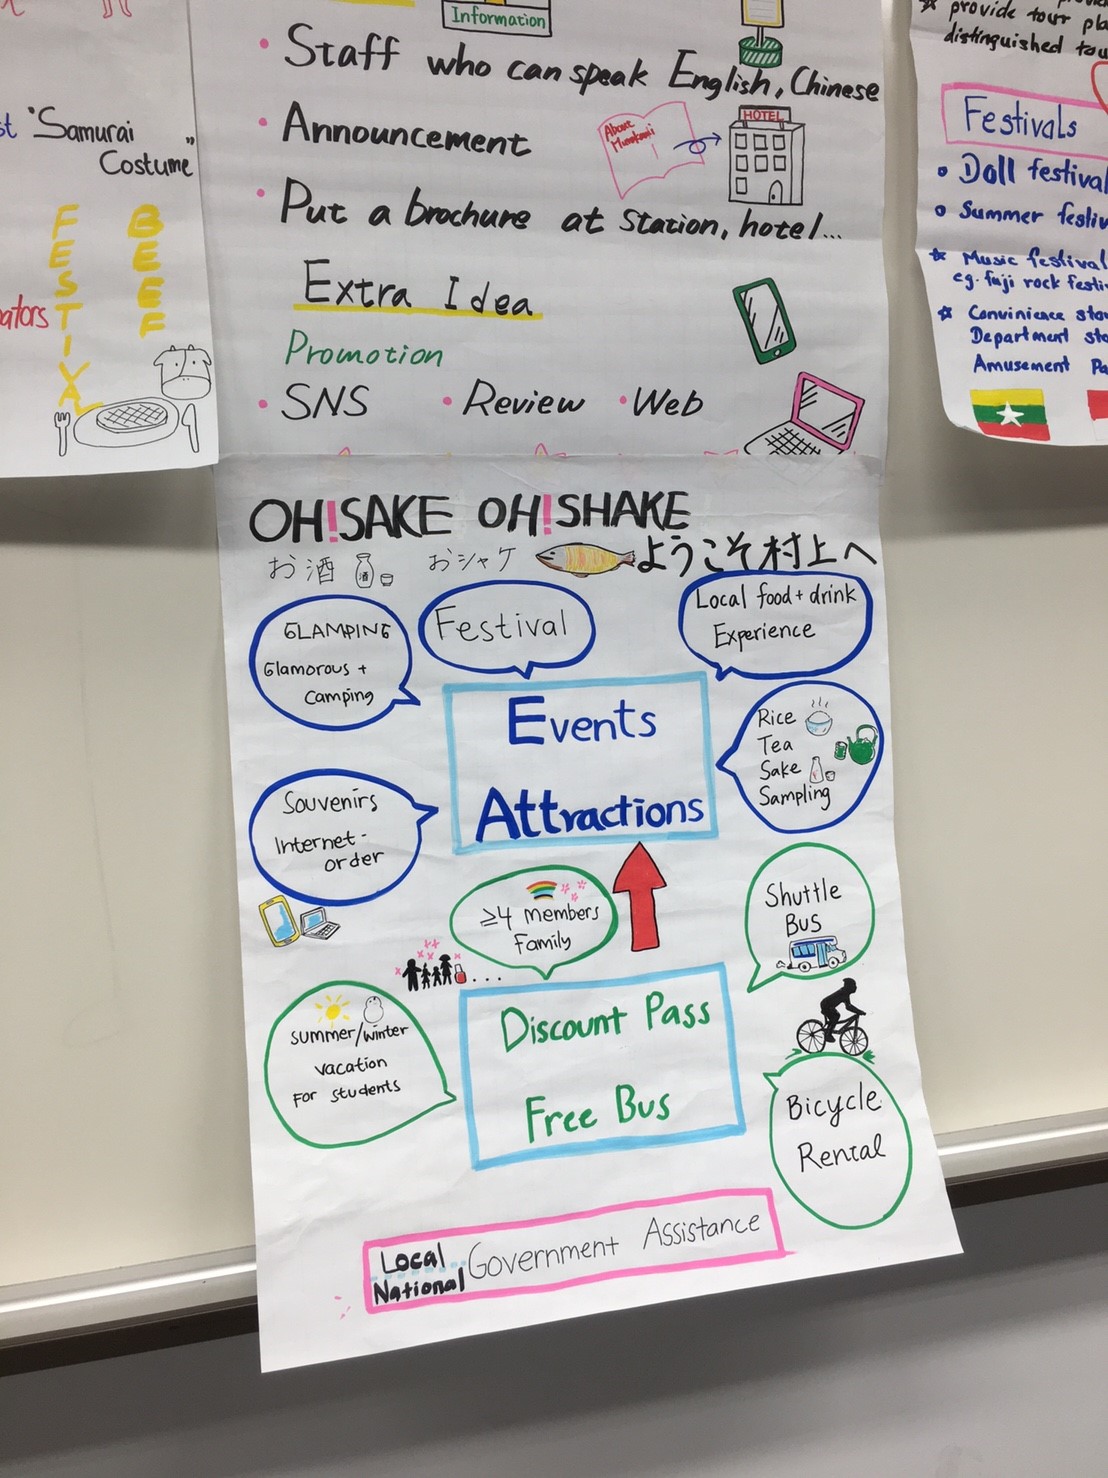 Information
• Staff who can speak English, Chinese
• Announcement
About
Murakami
HOTEL
• Put a brochure at station, hotel...
Extra Idea
Promotion
• SNS • Review • Web
"Samurai
Costume"
FESTIVAL
BEEF
provide tour
distinguished
Festivals
Doll festival
Summer
☆ Music festival
eg. fuji rock
☆ Convinience
Department
Amusement
OH!SAKE OH!SHAKE
お酒 酒 おシャケ ようこそ村上へ
GLAMPING
Glamorous +
Camping
Festival
Local food + drink
Experience
Events
Attractions
Rice
Tea
Sake
Sampling
Souvenirs
Internet-
order
≥4 members
Family
Shuttle
Bus
summer/winter
vacation
For students
Discount Pass
Free Bus
Bicycle
Rental
Local
National
Government Assistance